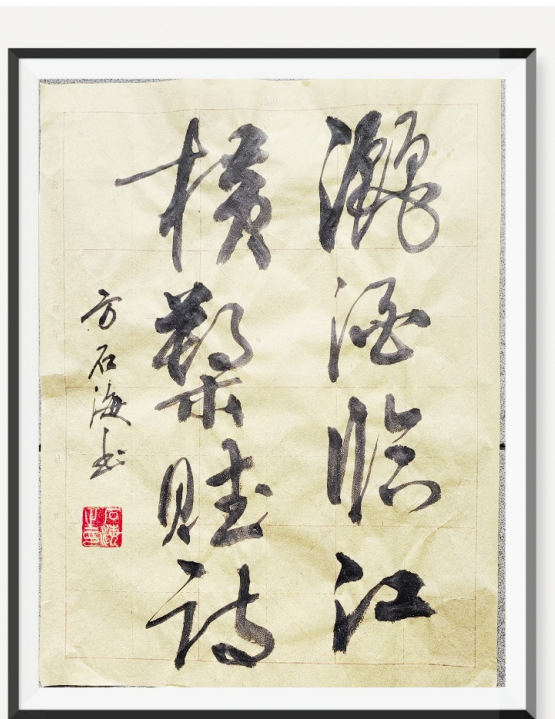 酾酒临江
横槊赋诗
方石海书
石海